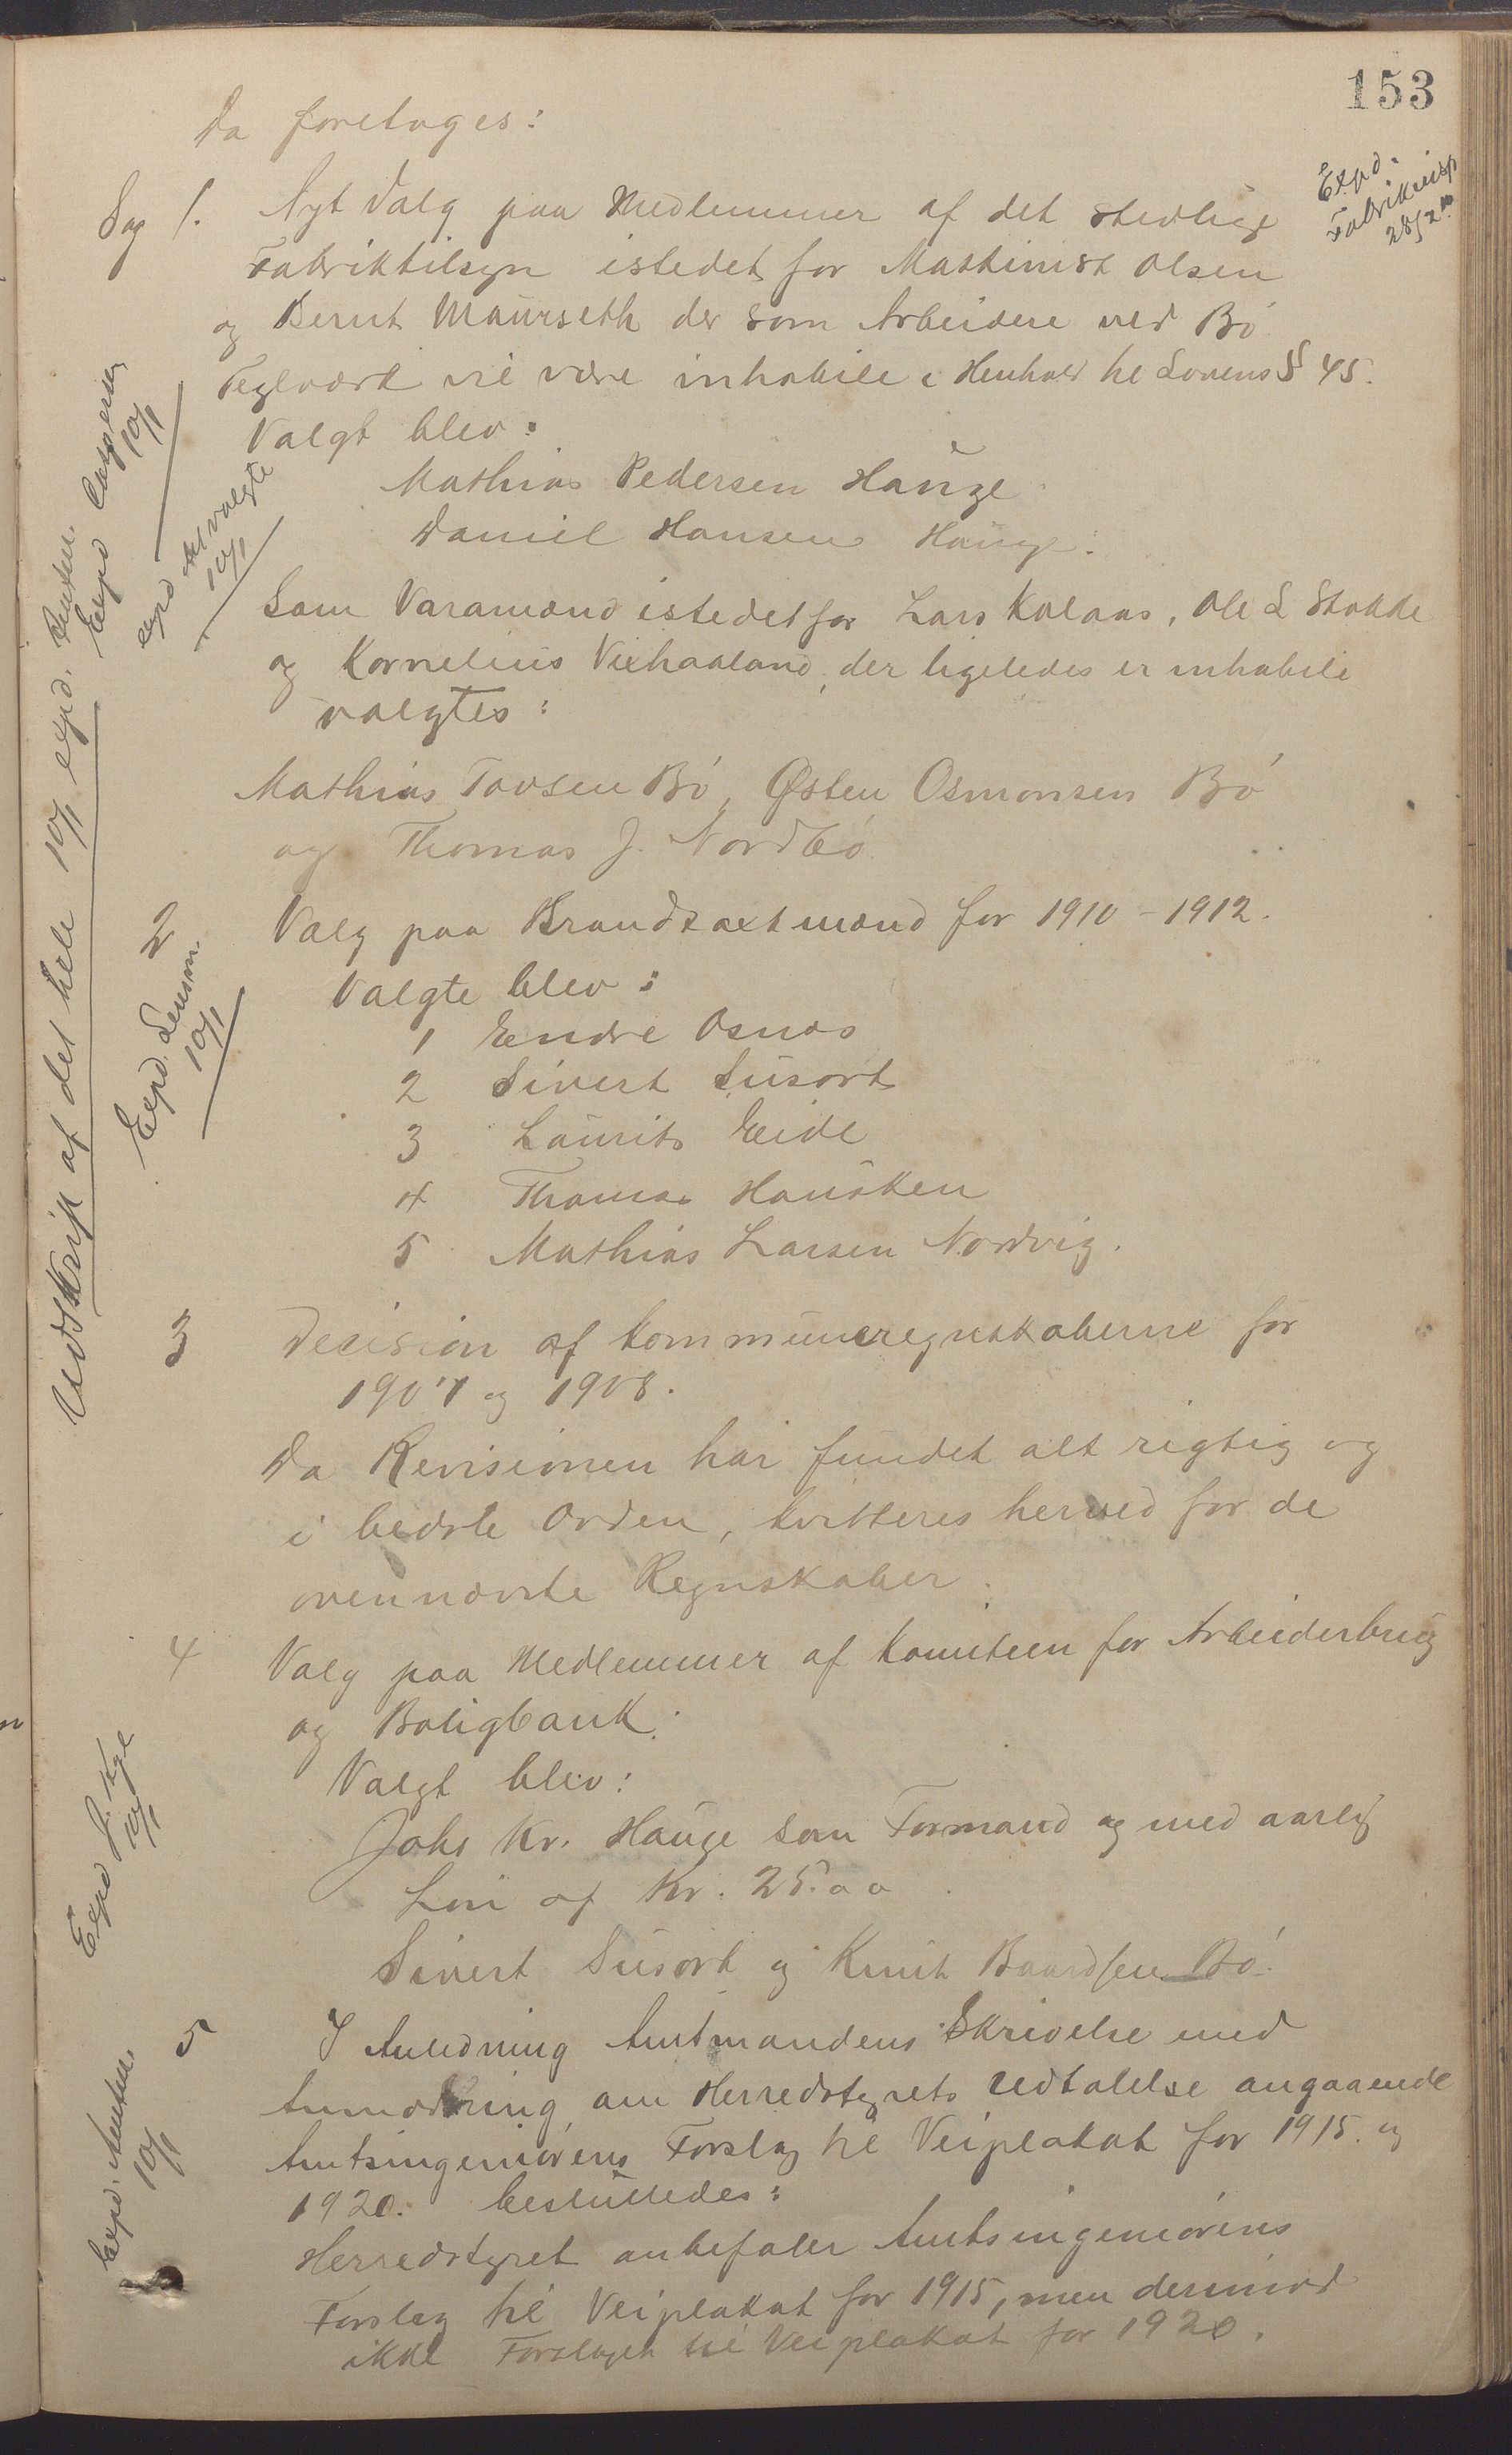 153
Da foretages:
Expd.
Fabriktilsp
28/2 10
Sag 1. Nyt Valg paa Medlemmer af det stedlige
Fabriktilsyn istedet for Maskinist Olsen
og Bernt Maurseth der som Arbeidere ved Bø
Teglværk vil være inhabile i Henhold til Lovens § 45.
Valgt blev:
Mathias Pedersen Hauge
Daniel Hansen Hauge.
Som Varamænd istedetfor Lars Kolaas, Ole L Stokke
og Kornelius Vikhaaland, der ligeledes er inhabile
valgtes:
Mathias Tovsen Bø, Østen Osmonsen Bø
og Thomas J. Nordbø.
expd
10/1
expd de valgte
10/1
Udskrift af det hele 10/1 expd.
2 Valg paa Brandtaxtmænd for 1910-1912.
Expd. Lensm.
10/1
Valgte blev:
1 Endre Osnes
2 Sivert Susort
3 Laurits Eide
4 Thomas Hausken
5 Mathias Larsen Nordvig.
3 Decision af Kommuneregnskaberne for
1907 og 1908.
Da Revisionen har fundet alt rigtig og
i bedste Orden, kvitteres herved for de
ovennævnte Regnskaber.
4 Valg paa Medlemmer af Komiteen for Arbeiderbrug
og Boligbank.
Valgt blev:
Johs Kr. Hauge som Formand og med aarlig
Løn af Kr. 25.00.
Sivert Susort og Knut Baardsen Bø.
Expd J. Hge
10/1
5 I Anledning Amtmandens Skrivelse med
Anmodning om Herredstyrets Udtalelse angaaende
Amtsingeniørens Forslag til Veiplakat for 1915. og
1920. besluttedes:
Herredstyret anbefaler Amtsingeniørens
Forslag til Veiplakat for 1915, men derimod
ikke Forslaget til Veiplakat for 1920.
Expd. Amtm.
10/1